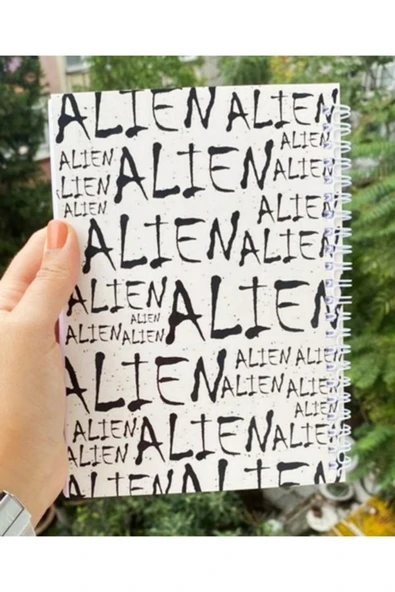 ALIEN ALIEN
ALIEN
ALIEN ALIEN ALIEN
LIEN
ALIEN ALIEN
ALIEN ALIEN
ALIEN ALIEN
ALIEN
ALIEN ALIEN
ALIEN ALIEN ALIEN
ALIEN ALIEN
ALIEN
ALIEN ALIEN ALIEN
ALIEN
ALIEN ALIEN